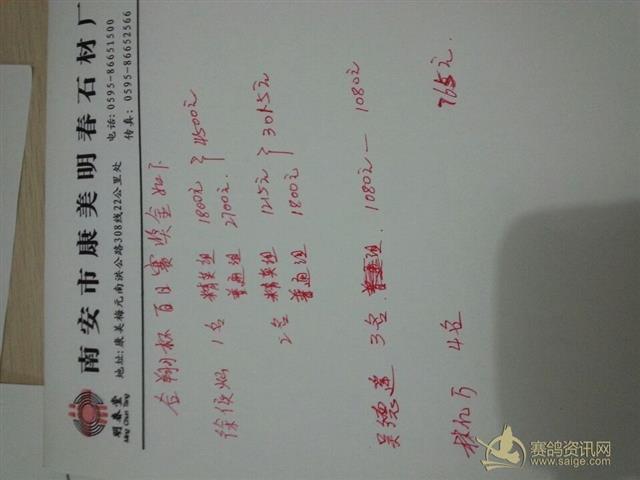 南安市康美明春石材厂
地址：康美梅元南洪公路308线22公里处
电话：0595-86651500
传真：0595-86652566
明春堂
Ming Chun Tang
杯百日赛奖金如下
徐 1名 精英组 1800元 } 4500元
普通组 2700元
2名 精英组 1215元 } 3015元
普通组 1800元
吴德 3名 普通组 1080元 — 1080元
林亿万 4名 765元
赛鸽资讯网
www.saige.com